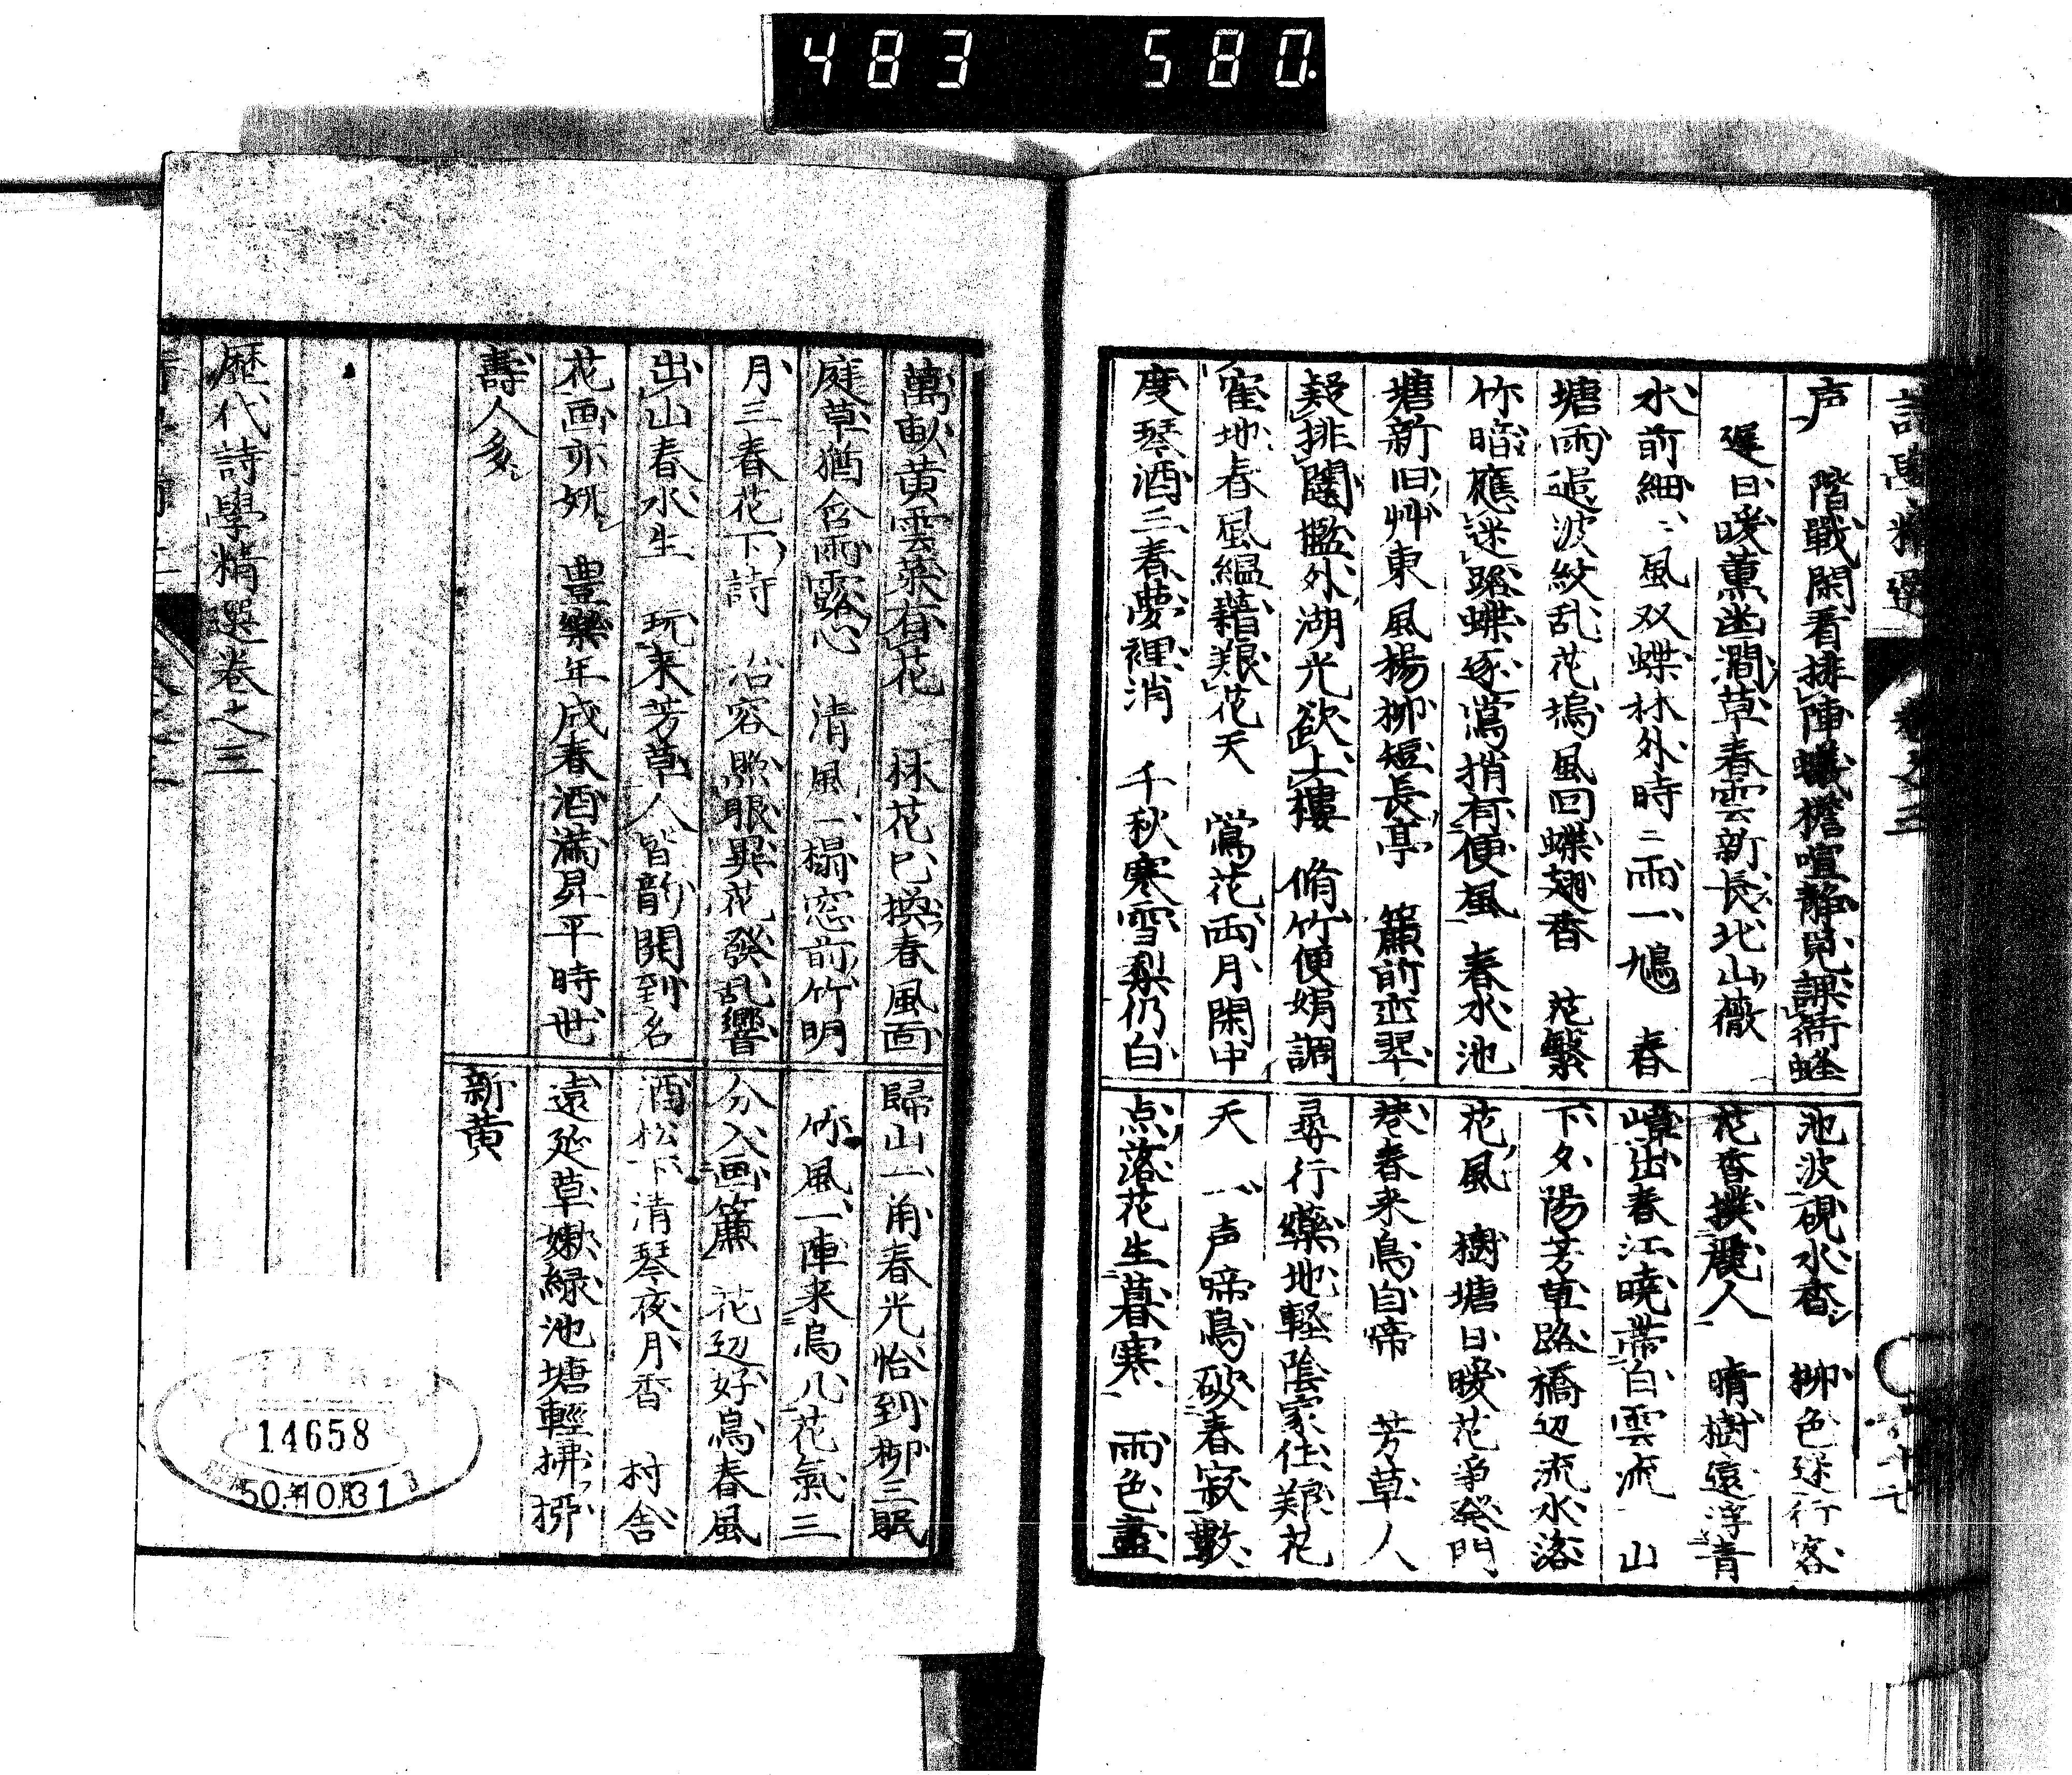 483 580.
声 階戦閑看排陣蟻檐喧静見課衙蜂
遅日暖薫幽澗草春雲新長北山薇
水前細ミ風双蝶林外時ニ雨一鳩 春
塘雨過波紋乱花塢風回蝶翅香 花繁
竹暗應迷路蝶逐鴬捎有便風 春水池
塘新旧艸東風楊柳短長亭 簾前
疑排闥檻外湖光欲上樓 脩竹便娟調
寉地春風縕藉艱花天 鴬花両月閑中
度琴酒三春夢裡消 千秋寒雪梨仍白
池波硯水香 柳色迷行客
花香撲麗人 晴樹遠浮青
嶂出春江暁帯白雲流 山
下夕陽芳草路橋辺流水落
花風 樹塘日暖花争発門
巷春来鳥自啼 芳草人
尋行藥地軽陰家住艱花
天 一声啼鳥破春寂数
点落花生暮寒 雨色盡
萬畝黄雲菜有花 林花已換春風面
庭草猶含雨露心 清風一榻窓前竹明
月三春花下詩 冶容照眼異花発乱響
出山春水生 玩来芳草人皆韵開到名
花画亦妖 豊樂年成春酒満昇平時世
壽人多
歸山一角春光怡到柳三眠
竹風一陣来鳥几花氣三
分入画簾 花辺好鳥春風
酒松下清琴夜月香 村舎
遠延草嫩緑池塘輕拂柳
新黄
歴代詩學精選巻之三
14658
50.年10.月31日